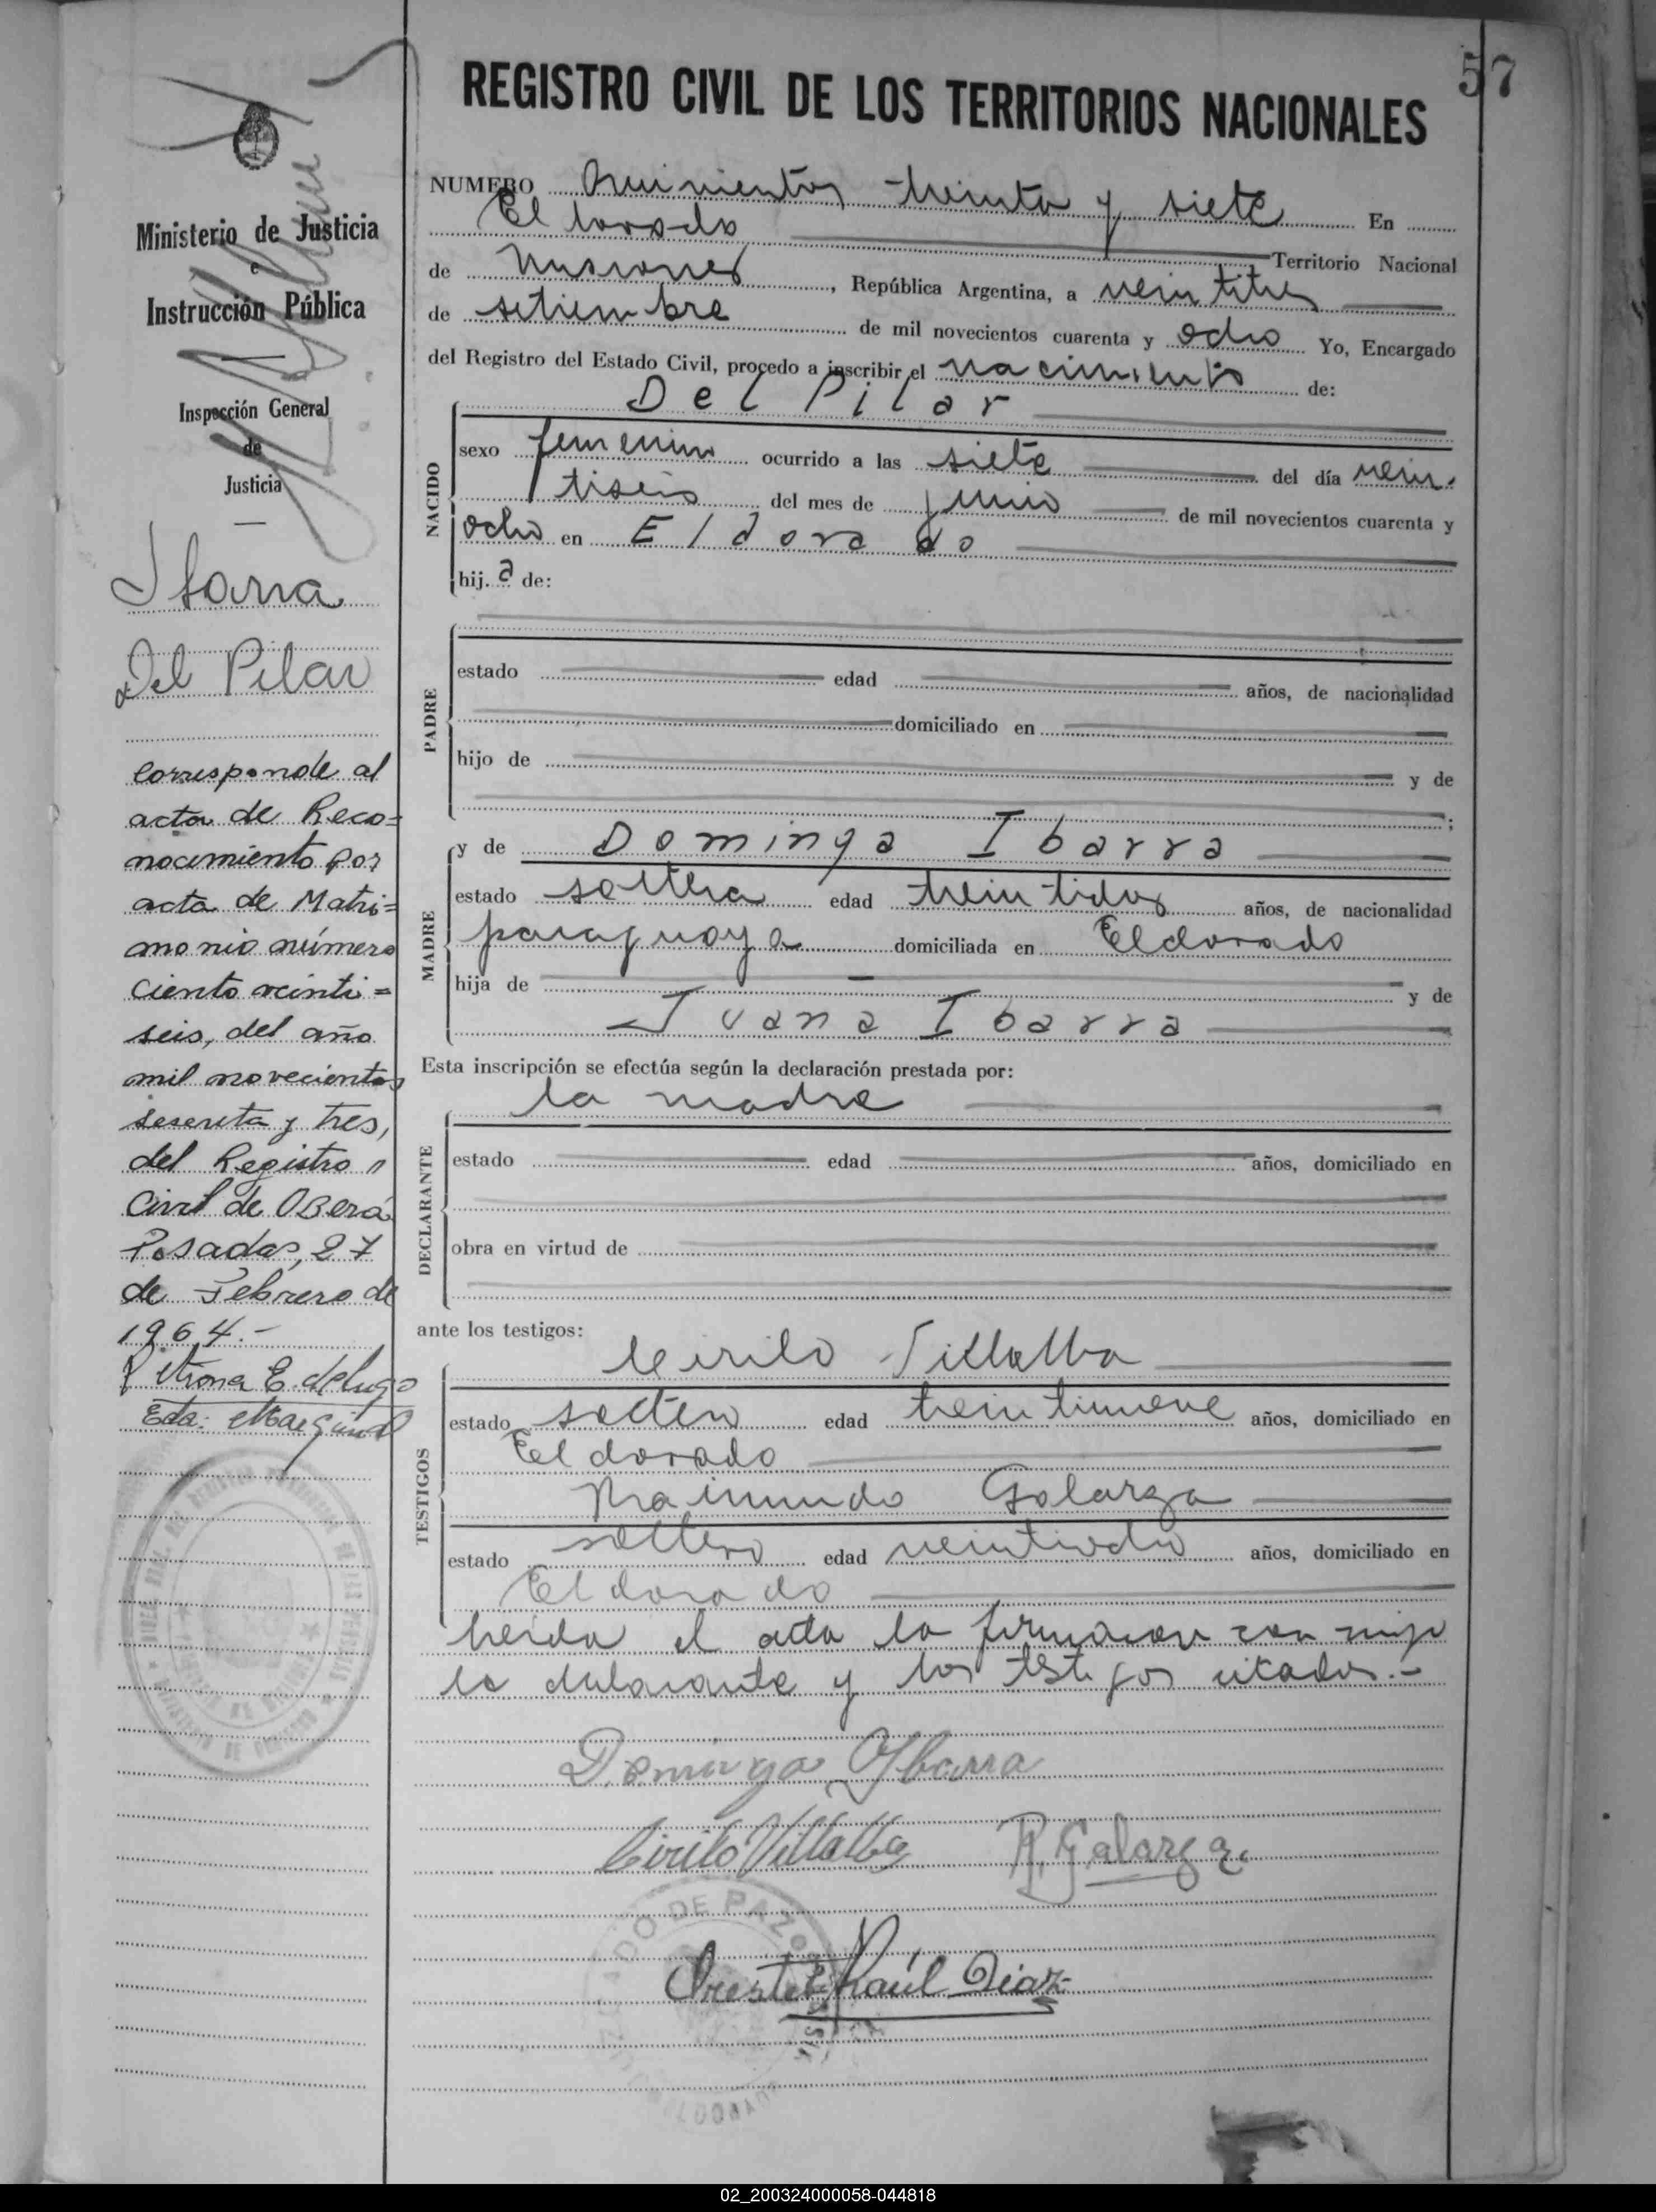 57
REGISTRO CIVIL DE LOS TERRITORIOS NACIONALES
NUMERO Quinientos treinta y siete En
Eldorado Territorio Nacional
de Misiones, República Argentina, a veintitres
de setiembre de mil novecientos cuarenta y ocho Yo, Encargado
del Registro del Estado Civil, procedo a inscribir el nacimiento de:
NACIDO
Del Pilar
sexo femenino ocurrido a las siete del día vein-
tiseis del mes de junio de mil novecientos cuarenta y
ocho en Eldorado
hija de:
PADRE
estado edad años, de nacionalidad
domiciliado en
hijo de y de
;
MADRE
y de Dominga Ibarra
estado soltera edad treintidos años, de nacionalidad
paraguaya domiciliada en Eldorado
hija de y de
Juana Ibarra
Esta inscripción se efectúa según la declaración prestada por:
DECLARANTE
la madre
estado edad años, domiciliado en
obra en virtud de
ante los testigos:
TESTIGOS
Cirilo Villalba
estado soltero edad treintinueve años, domiciliado en
Eldorado
Raimundo Galarza
estado soltero edad veintiocho años, domiciliado en
Eldorado
Leida el acta la firmaron con migo
la declarante y los testigos citados.-
Dominga Ybarra
Cirilo Villalba R. Galarza
Orestes Raúl Diaz
JUZGADO DE PAZ
Ministerio de Justicia
e
Instrucción Pública
Inspección General
de
Justicia
Ibarra
Del Pilar
Corresponde al
acta de Reco=
nocimiento por
acta de Matri=
monio número
ciento veinti=
seis, del año
mil novecientos
sesenta y tres,
del Registro
Civil de Oberá
Posadas, 27
de Febrero de
1964.-
Petrona E. de Lugo
Eda: Marginal
02_200324000058-044818